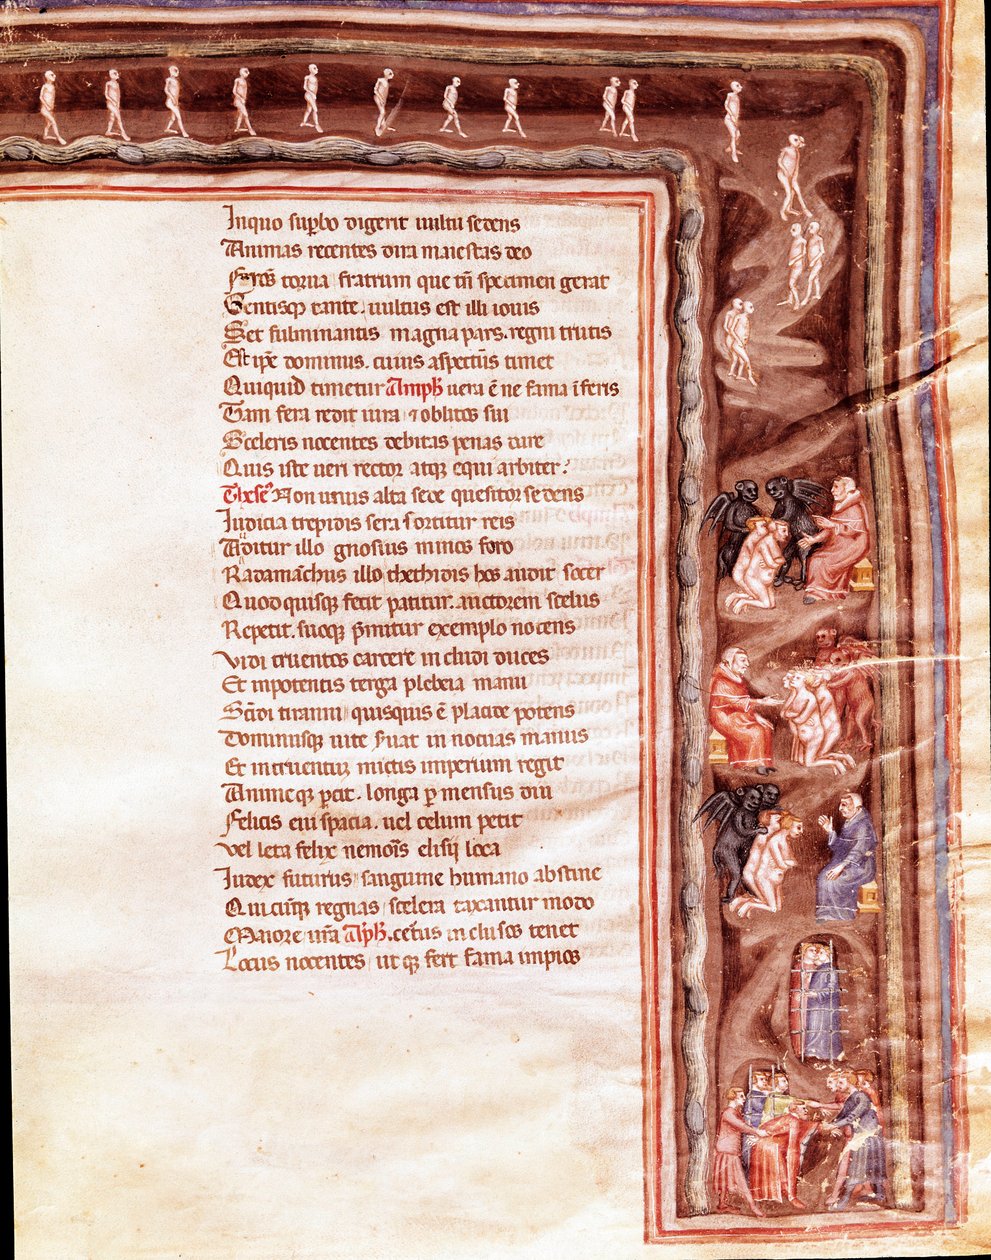 In quo supbo digerit uultu sedens
Animas recentes dira maiestas deo
Frons torua fratrum que tn specimen gerat
Gentisq tante. uultus est illi iouis
Set fulminantis magna pars. regni trucis
Est ipe dominus. cuius aspectus timet
Quiquid timetur Amph uera e ne fama iferis
Tam fera redit iura & oblitos sui
Sceleris nocentes debitas penas dare
Quis iste ueri rector atq equi arbiter
Thes Non unus alta sede quesitor sedens
Iudicia trepidis sera sortitur reis
Aditur illo gnosius minos foro
Radamachus illo thethidis hos audit socer
Quod quisque fecit patitur. auctorem scelus
Repetit. suoq pmitur exemplo nocens
Vidi cruentos carcere includi duces
Et inpotentis terga plebeia manu
Scidi tiranni quisquis e placide potens
Dominusq uite suat innocuas manus
Et incruentum mictis imperium regit
Animeq pcit. longa pmensus diu
Felicis eui spacia. uel celum petit
Vel leta felix nemois elisij loca
Iudex futurus sanguine humano abstine
Qui cuq regnas scelera taxantur modo
Maiore ura Aph. certus inclusos tenet
Locus nocentes ut q fert fama impios